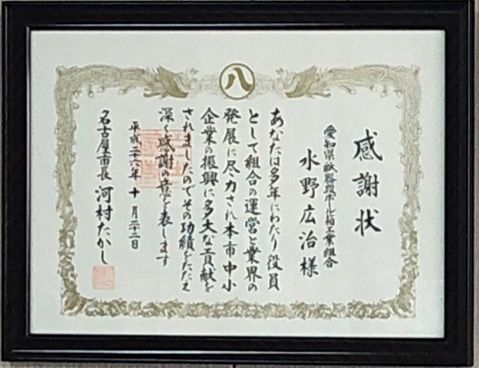 八
感謝状
愛知県紙器段ボール箱工業組合
水野広治様
あなたは多年にわたり役員
として組合の運営と業界の
発展に尽力され本市中小
企業の振興に多大な貢献を
されましたのでその功績をたたえ
深く感謝の意を表します
平成二十六年十月二十二日
名古屋市長 河村たかし